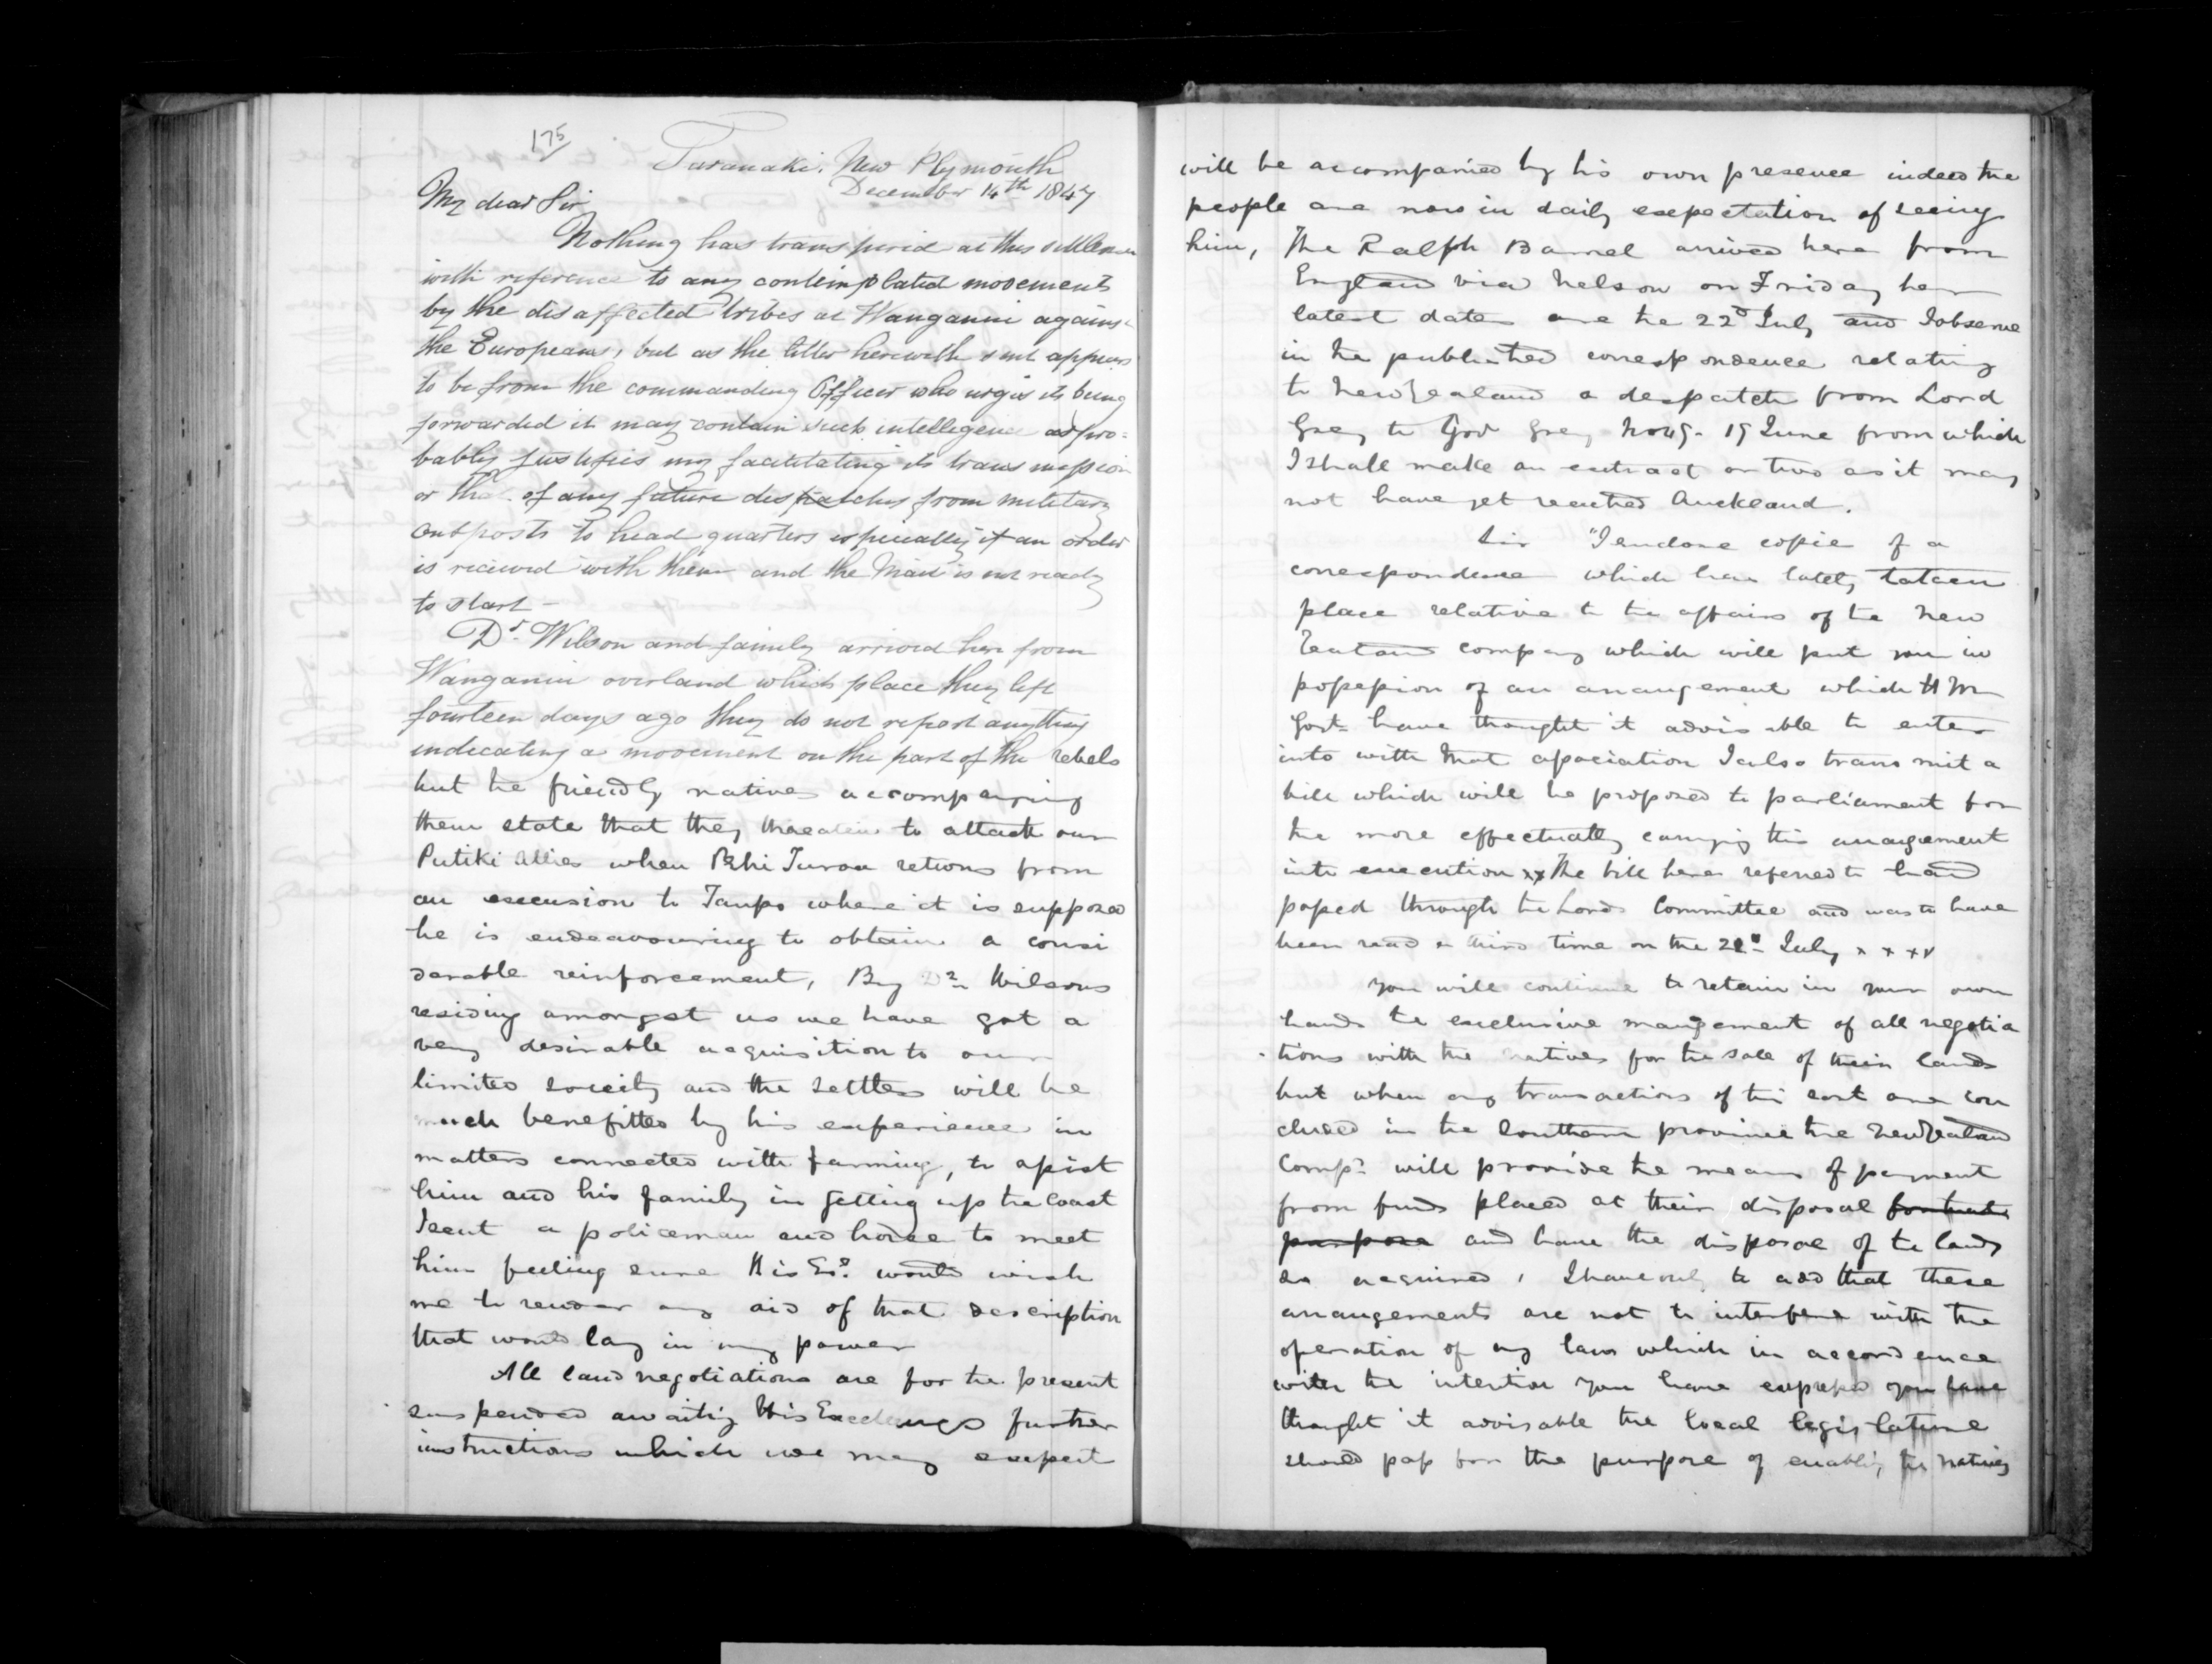 175
Taranaki. New Plymouth
December 14th 1847
My dear Sir
Nothing has transpired at this settlemen
with reference to any contemplated movements
by the disaffected tribes at Wanganui against
the Europeans, but as the letter herewith sent appears
to be from the commanding Officer who urges its being
forwarded it may contain such intelligence as pro=
bably justifies my facilitating its transmission
or that of any future despatches from military
outposts to head quarters especially if an order
is recieved with them and the Mail is not ready
to start –
Dr. Wilson and family arrived here from
Wanganui overland which place they left
fourteen days ago they do not report anything
indicating a movement on the part of the rebels
but the friendly natives accompanying
them state that they threaten to attack our
Putiki Allies when Turoa returns from
an excursion to Taupo where it is supposed
he is endeavouring to obtain a consi
derable reinforcement, By Dr Wilsons
residing amongst us we have got a
very desirable acquisition to our
limited society and the settlers will be
much benefitted by his experience in
matters connected with farming, to assist
him and his family in getting up the Coast
I sent a policeman and horse to meet
him feeling sure His Exe. would wish
me to render any aid of that description
that would lay in my power
All land negotiations are for the present
suspended awaiting His Excellencys further
instructions which we may expect
will be accompanied by his own presence indeed the
people are now in daily expectation of seeing
him, The Ralph Barnal arrived here from
England via Nelson on Friday her
latest dates are the 22d July and I observe
in the published correspondence relating
to New Zealand a despatch from Lord
Grey to Gov Grey No 45. 19 June from which
I shall make an extract or two as it may
not have yet reached Auckland.
Sir "I enclose copie of a
correspondence which has lately taken
place relative to the affairs of the New
Zealand company which will put you in
possession of an arrangement which H M
Govt have thought it advisable to enter
into with that association I also transmit a
bill which will be proposed to parliament for
the more effectually carrying this arrangement
into execution xx The bill here referred to had
passed through the Lords Committee and was to have
been read a third time on the 22d July x x x x
You will continue to retain in your own
hands the exclusive mangement of all negotia
tions with the natives for the sale of their lands
but when any transactions of this sort are con
cluded in the Southern province the New Zealand
Compy will provide the means of payment
from funds placed at their disposal for that
purpose and have the disposal of the lands
so acquired, I have only to add that these
arrangements are not to interfere with the
operation of any laws which in accordence
with the intention you have expressed you have
thought it advisable the local legislature
should pass for the purpose of enabling the natives